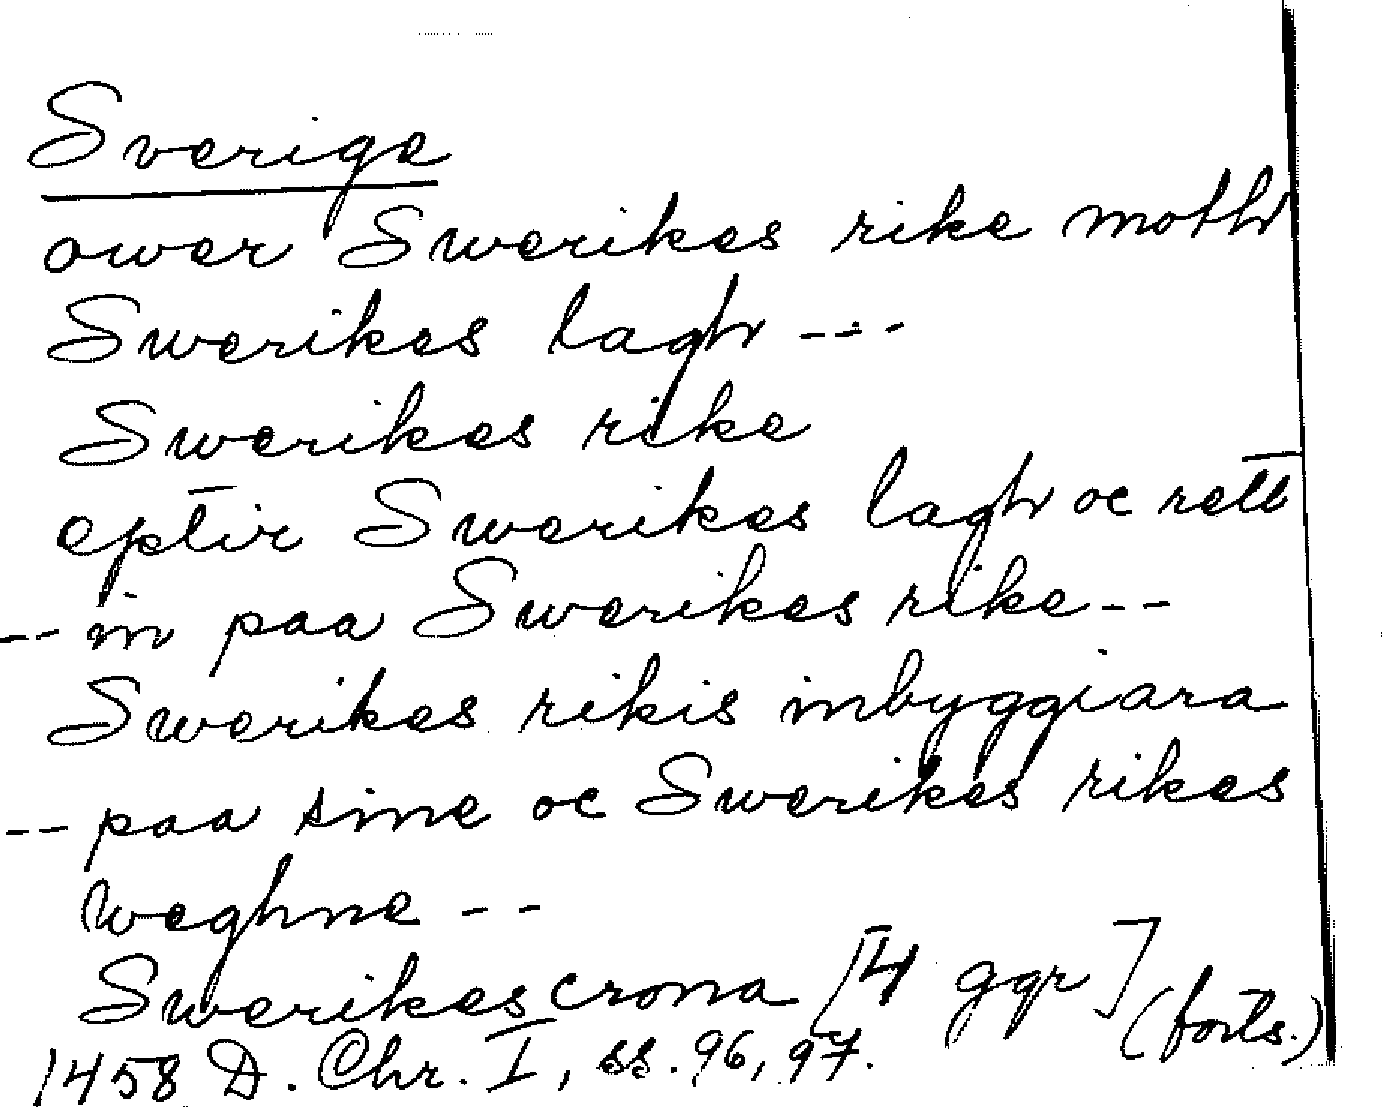 Sverige
ower Swerikes rike moth
Swerikes lagh ---
Swerikes rike
eptir Swerikes lagh oc rett
-- in paa Swerikes rike --
Swerikes rikis inbyggiara
-- paa sine oc Swerikes rikes
weghne --
Swerikes crona [4 ggr] (forts.)
1458 D. Chr. I, ss. 96, 97.